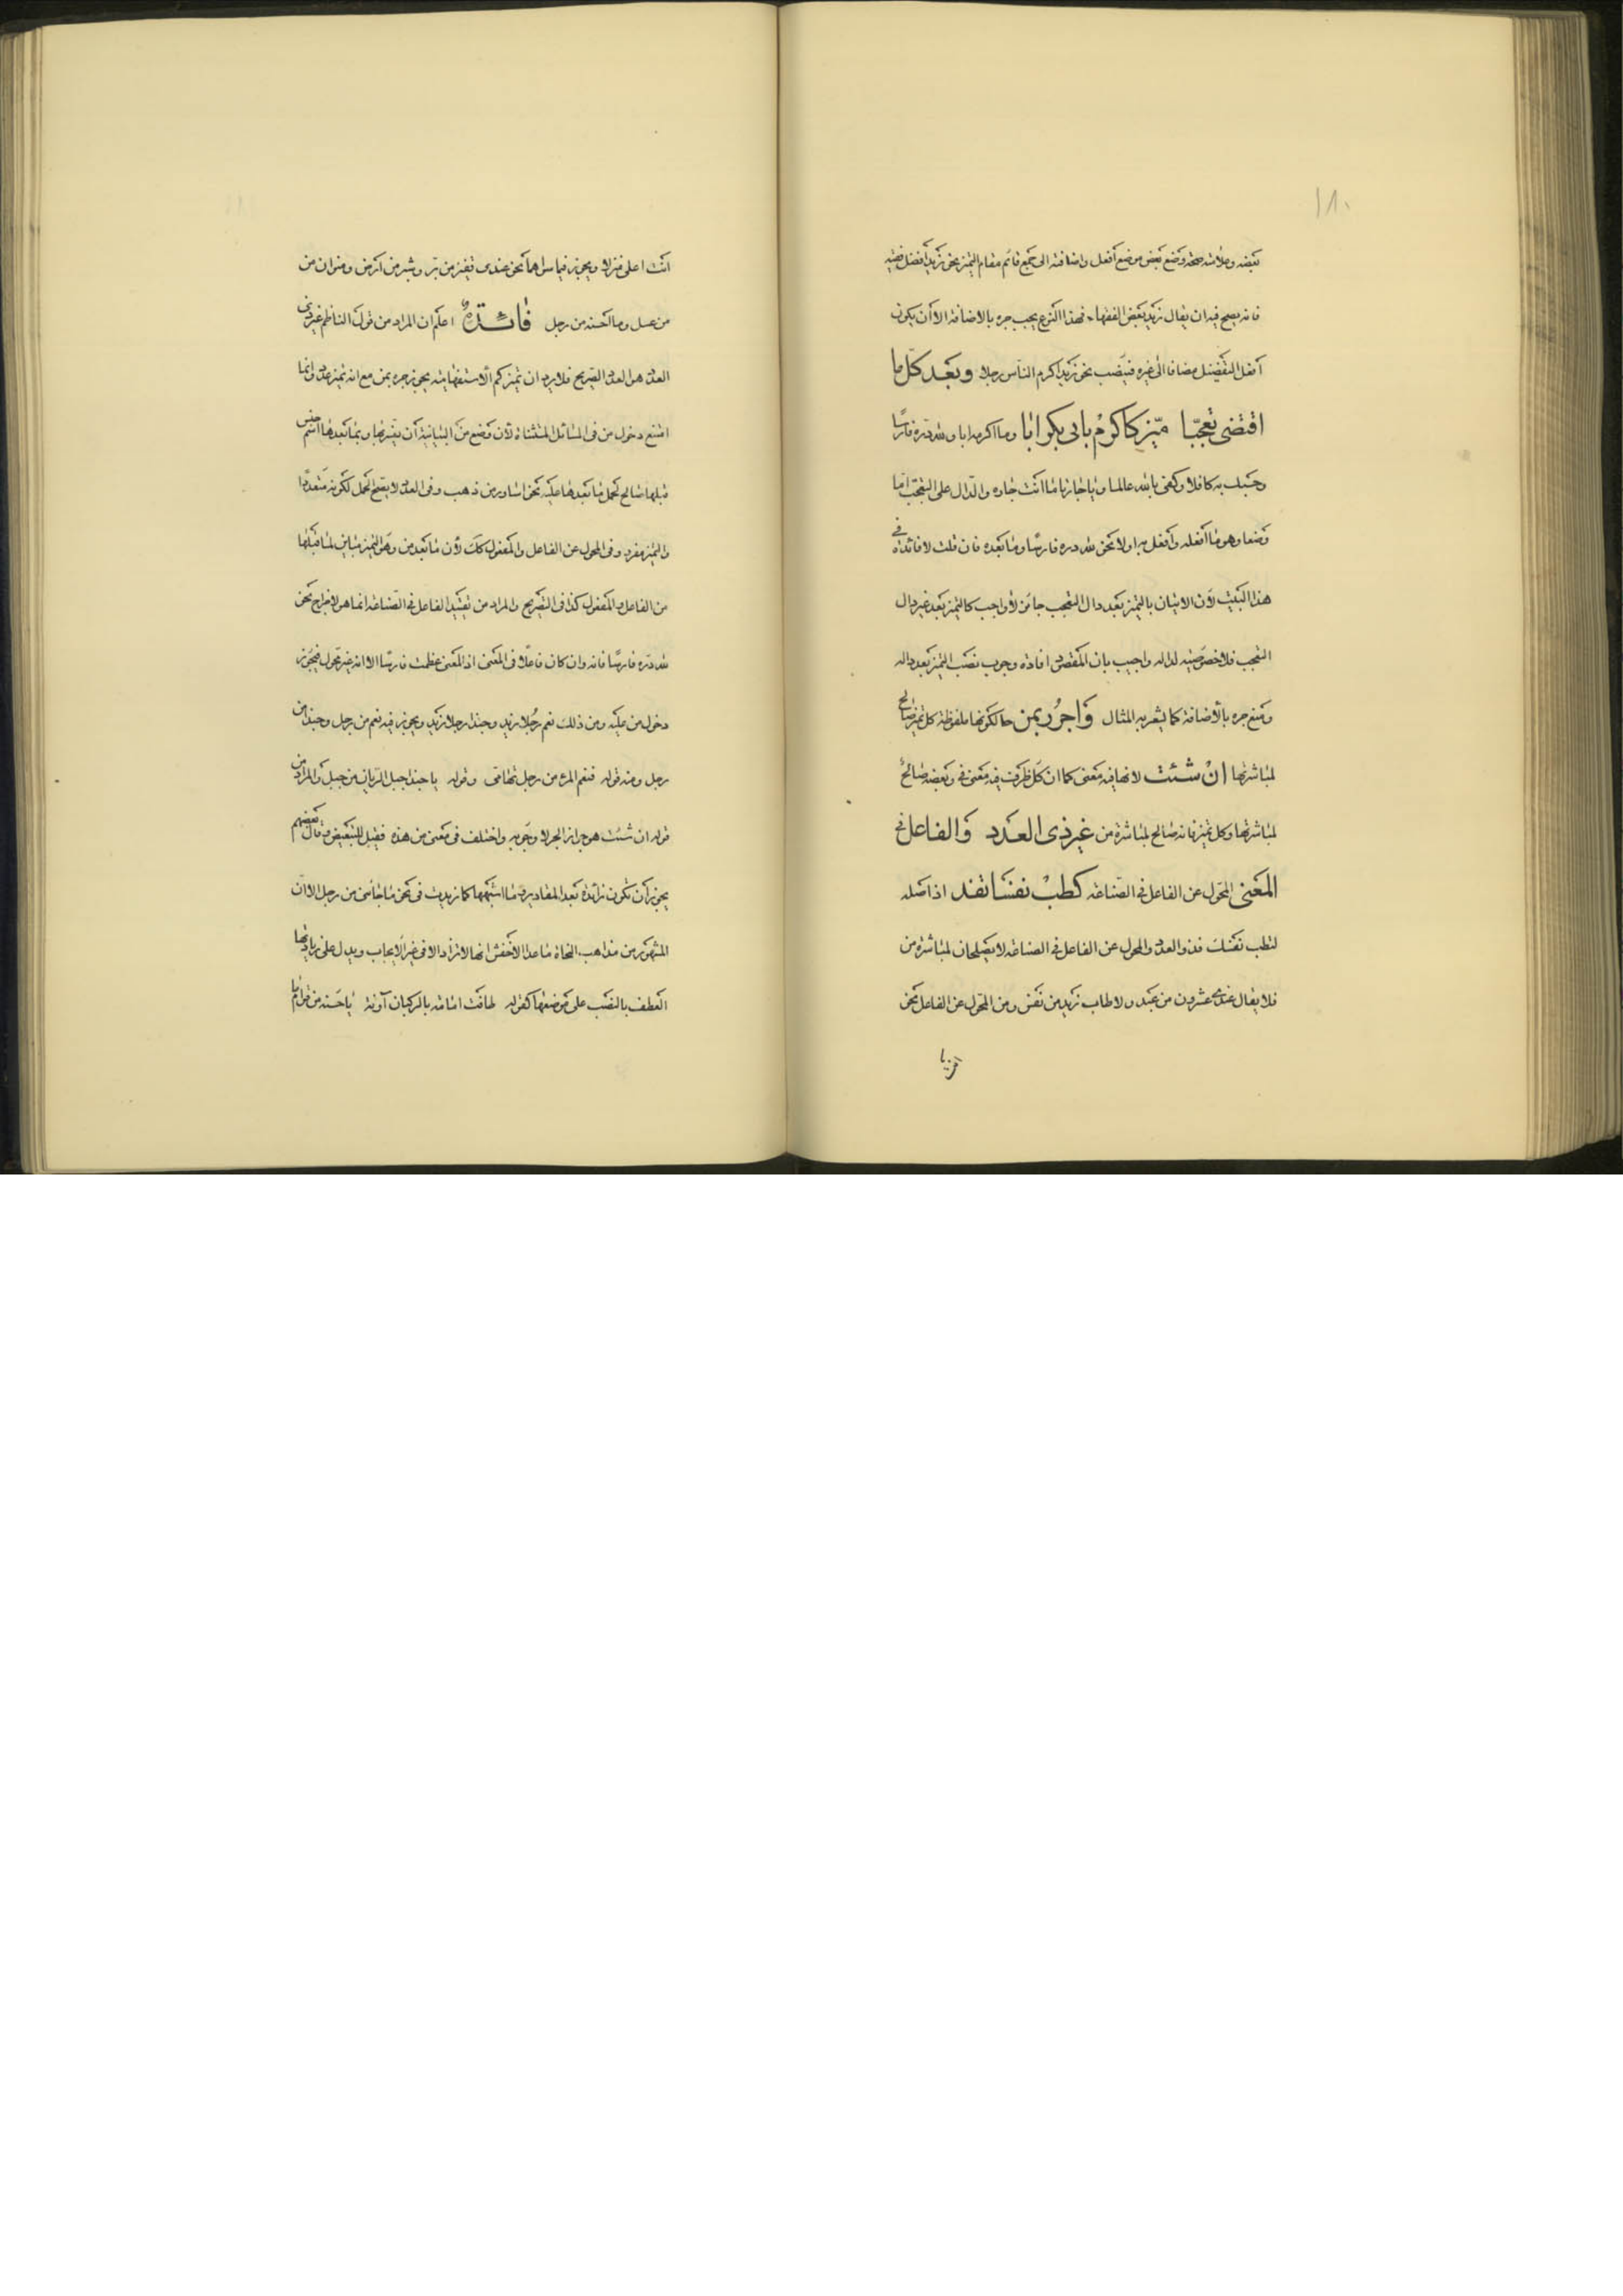 ١٨٠
بعضه وعلامته صحة وضع بعض موضع افعل واضافته الى جمع قائم مقام التميز نحو زيد افضل فقيه
فانه يصح فيه ان يقال زيد بعض الفقهاء فهذا النوع يجب جره بالاضافة الا ان يكون
افعل التفضيل مضافا الى غيره فينصب نحو زيد اكرم الناس رجلا وبعد كل ما
اقتضى تعجبا ميز كاكرم بابى بكر ابا وما اكرمه ابا ولله دره فارسا
وحسبك به كافلا وكفى بالله عالما ويا جارتا ما انت جاره والدال على التعجب اما
وضعا وهو ما افعله وافعل به اولا نحو لله دره فارسا وما بعده فان قلت لا فائدة فى
هذا البيت لان الاتيان بالتميز بعد دال التعجب جائز لا واجب كالتميز بعد غير دال
التعجب فلا خصوصية لداله واجيب بان المقصود افادة وجوب نصب التميز بعد داله
ومنع جره بالاضافة كما يشعر به المثال واجرر بمن حالكونها ملفوظة كل تميز صالح
لمباشرتها ان شئت لانها فيه معنى كما ان كل ظرف فيه معنى فى وبعضه صالح
لمباشرتها وكل تميز فانه صالح لمباشرة من غير ذى العدد والفاعل فى
المعنى المحول عن الفاعل فى الصناعة كطب نفسا تفد اذ اصله
لتطب نفسك فذو العدد والمحول عن الفاعل فى الصناعة لا يصلحان لمباشرة من
فلا يقال عندى عشرون من عبد ولا طاب زيد من نفس ومن المحول عن الفاعل نحو
انت اعلى منزلا ويجوز فيما سواهما نحو عندى قفيز من بر وشبر من ارض ومنوان من
من عسل وما احسنه من رجل فائدة اعلم ان المراد من قول الناظم غير ذى
العدد هو العدد الصريح فلا يرد ان تميز كم الاستفهامية يجوز جره بمن مع انه تميز عدد وانما
امتنع دخول من فى المسائل المستثناة لان وضع من البيانية ان يفسر بها وبما بعدها اسم جنس
قبلها صالح لحمل ما بعدها عليه نحو اساور من ذهب وفى العدد لا يصح الحمل لكونه متعددا
والتميز مفرد وفى المحول عن الفاعل والمفعول كك لان ما بعد من وهو التميز مباين لما قبلها
من الفاعل والمفعول كذا فى التصريح والمراد من تقييد الفاعل فى الصناعة انما هو لاخراج نحو
لله دره فارسا فانه وان كان فاعلا فى المعنى اذ المعنى عظمت فارسا الا انه غير محول فيجوز
دخول من عليه ومن ذلك نعم رجلا زيد وحبذا رجلا زيد ويجوز فيه نعم من رجل وحبذا من
رجل ومنه قوله فنعم المرء من رجل تهامى وقوله يا حبذا جبل الريان من جبل والمراد من
قوله ان شئت هو جواز الجر لا وجوبه واختلف فى معنى من هذه فقيل للتبعيض وقال بعضهم
يجوز ان تكون زائدة بعد المقادير وما اشبهها كما زيدت فى نحو ما جاءنى من رجل الا ان
المشهور من مذاهب النحاة ما عدا الاخفش انها لا تزاد الا فى غير الايجاب ويدل على زيادتها
العطف بالنصب على موضعها كقوله طافت امامة بالركبان آونة يا حسنه من قوام ما